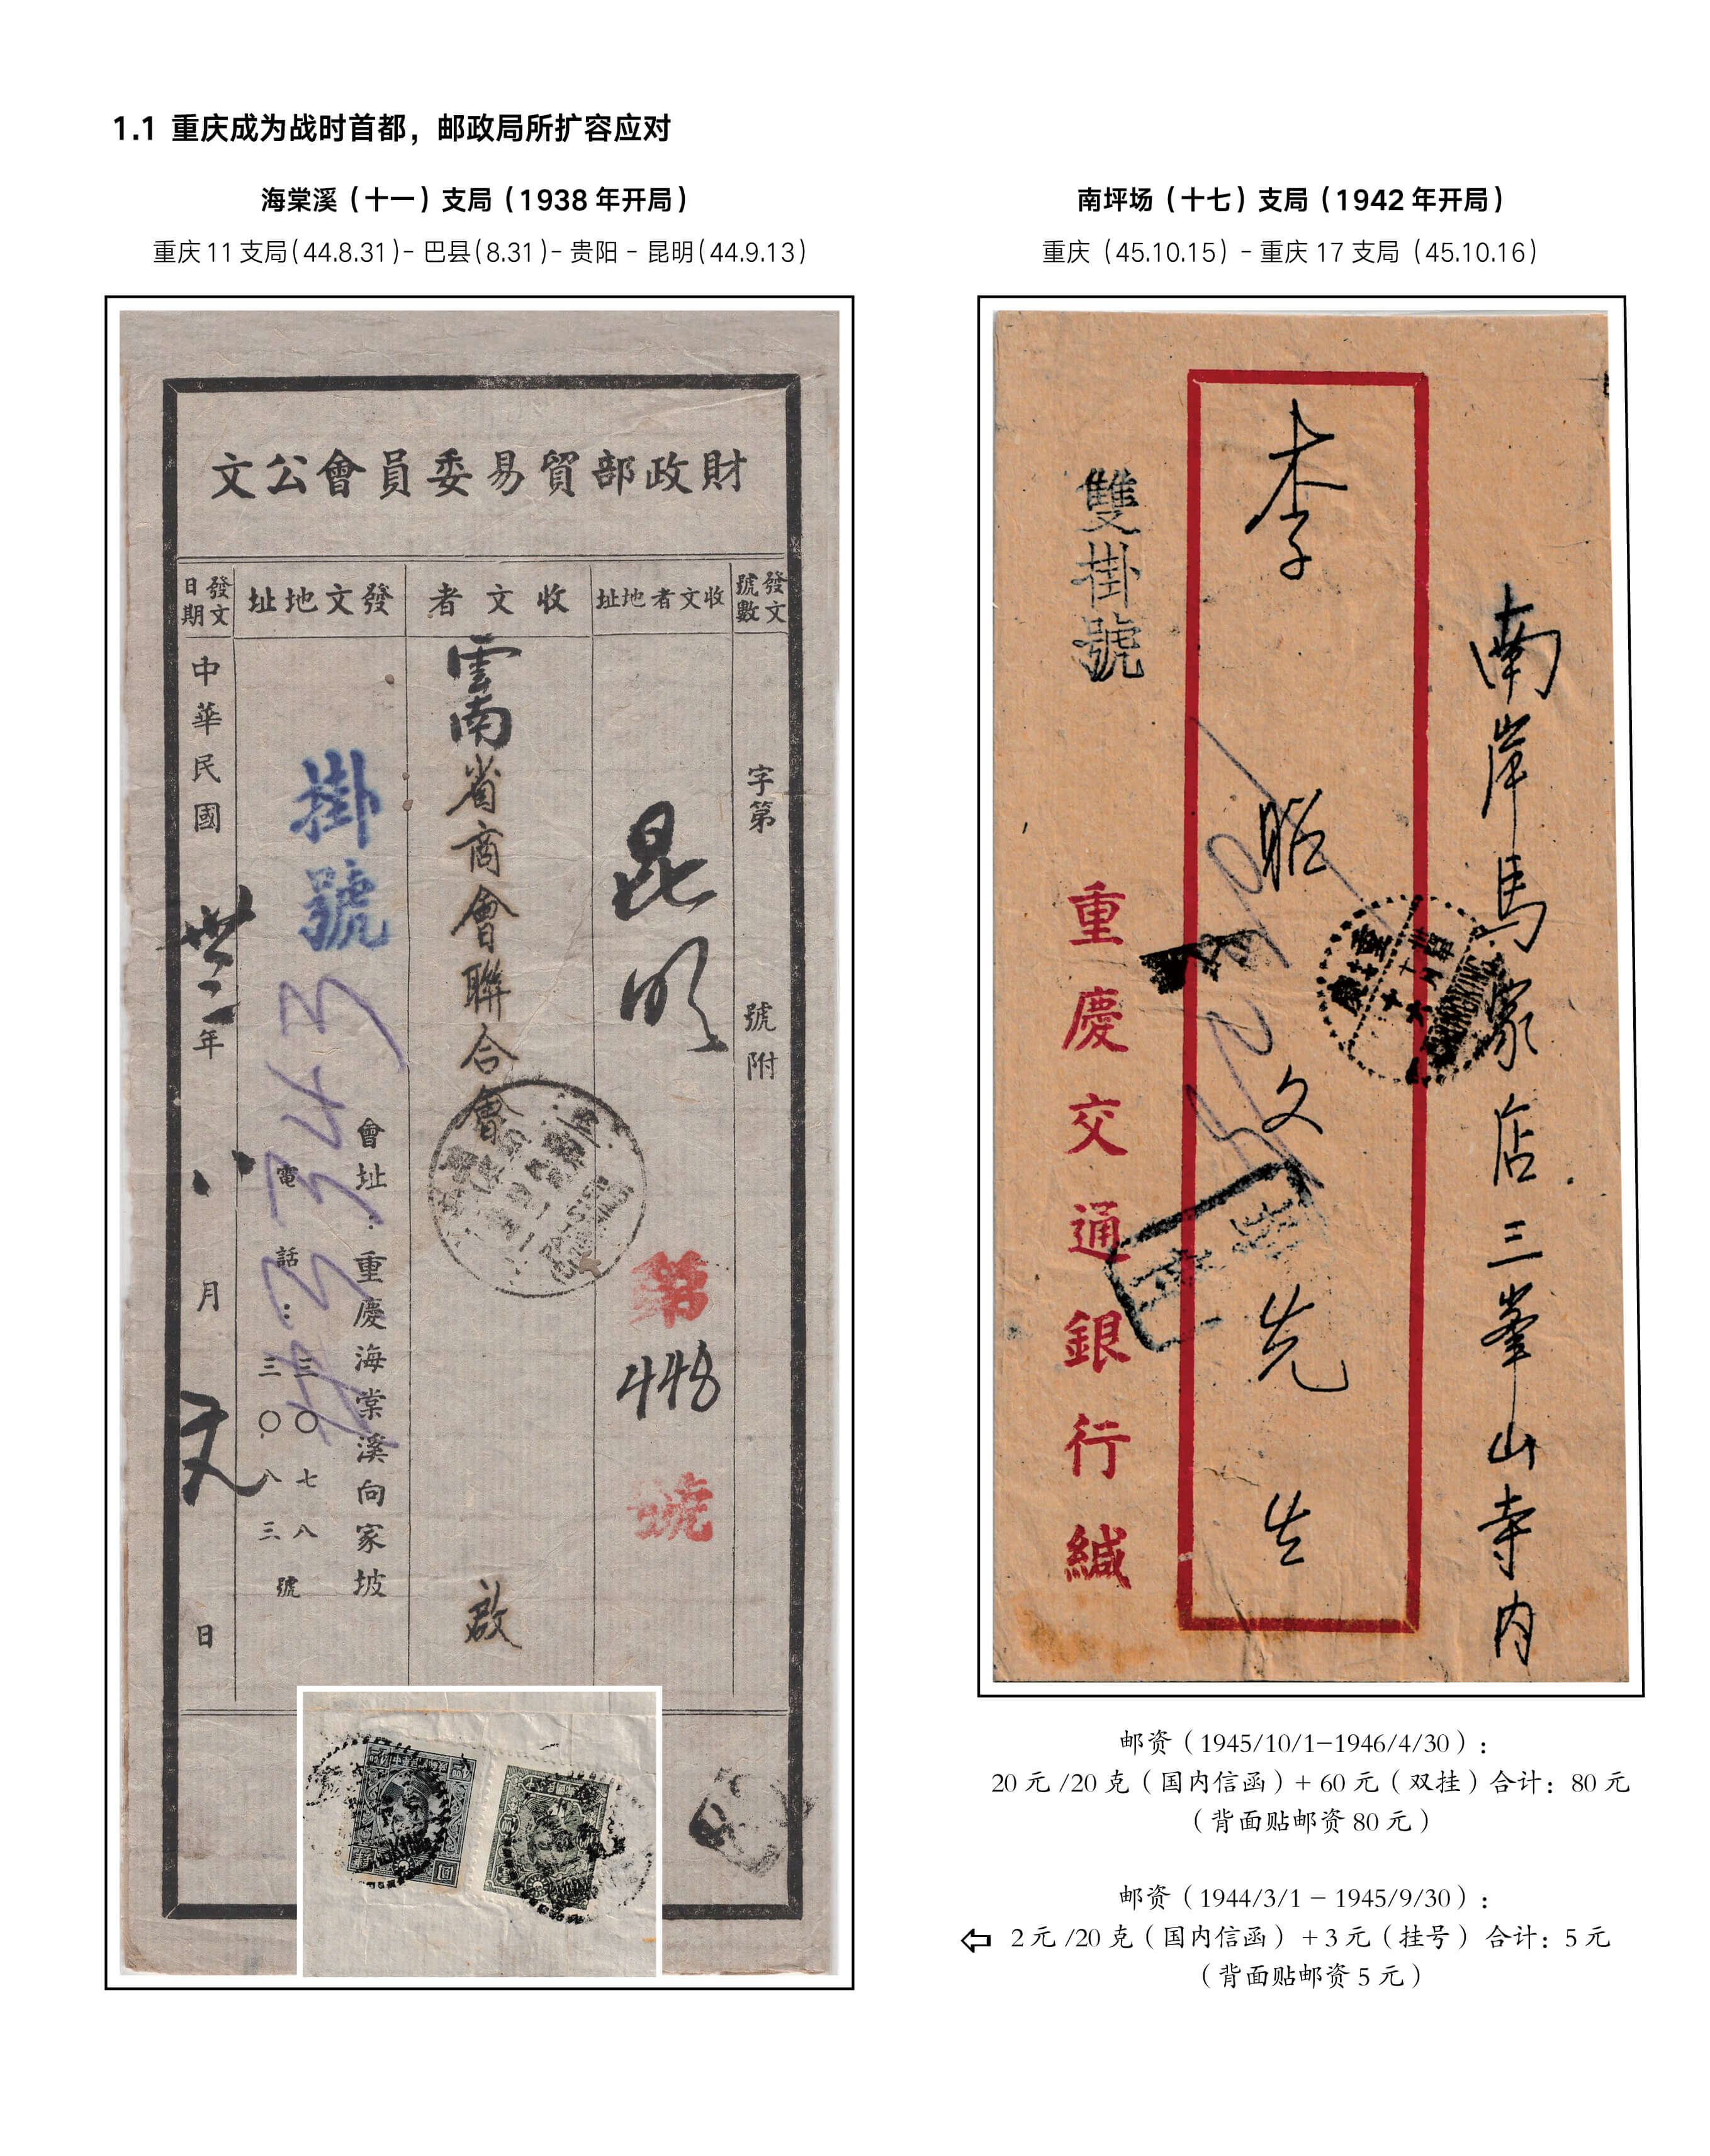 1.1 重庆成为战时首都，邮政局所扩容应对
海棠溪（十一）支局（1938 年开局）
重庆 11 支局（44.8.31）- 巴县（8.31）- 贵阳 - 昆明（44.9.13）
文公會員委易貿部政財
發文號數
字第
號附
址地者文收
昆明
第
448
號
者文收
雲南省商會聯合會
啟
址地文發
掛號
會址：重慶海棠溪向家坡
電話：三〇七八
三〇八三號
發文日期
中華民國
年
八
月
日
南坪场（十七）支局（1942 年开局）
重庆（45.10.15）- 重庆 17 支局（45.10.16）
南岸馬家店三峯山寺内
李
文先生
雙掛號
重慶交通銀行緘
邮资（1945/10/1-1946/4/30）：
20 元 /20 克（国内信函）+ 60 元（双挂）合计：80 元
（背面贴邮资 80 元）
邮资（1944/3/1 - 1945/9/30）：
2 元 /20 克（国内信函）+3 元（挂号）合计：5 元
（背面贴邮资 5 元）